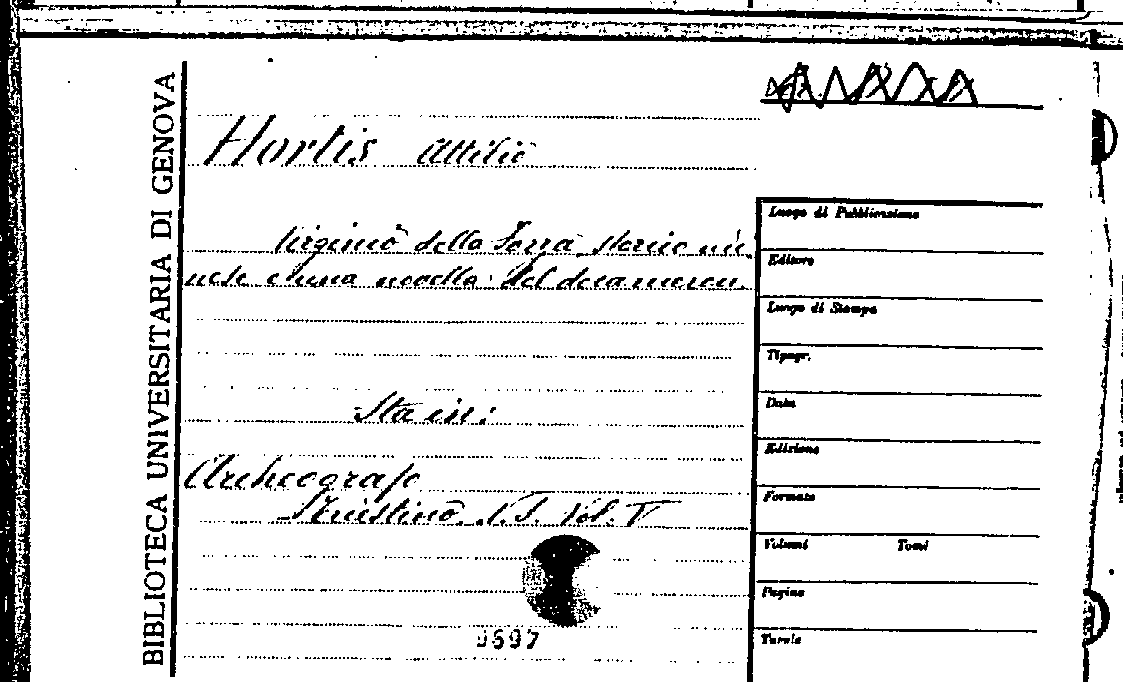 BIBLIOTECA UNIVERSITARIA DI GENOVA
Hortis Attilio
della storico mi
nese e una novella del decameron
Sta in:
Archeografo
Triestino N.S. Vol. V
9697
Luogo di Pubblicazione
Editore
Luogo di Stampa
Tipogr.
Data
Edizione
Formato
Volumi Tomi
Pagine
Tavole